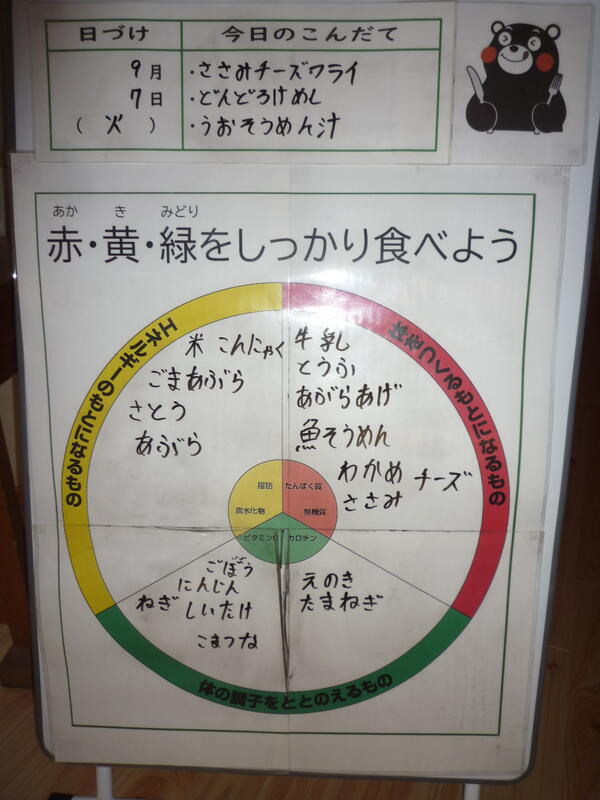 日づけ 今日のこんだて
9月 ・ささみチーズフライ
7日 ・どんどろけめし
(火) ・うおそうめん汁
あか き みどり
赤・黄・緑をしっかり食べよう
エネルギーのもとになるもの
体をつくるもとになるもの
米 こんにゃく
ごまあぶら
さとう
あぶら
牛乳
とうふ
あがらあげ
魚そうめん
わかめ チーズ
ささみ
脂肪 たんぱく質
炭水化物 無機質
ビタミンC カロチン
ごぼう
にんじん
ねぎ しいたけ
こまつな
えのき
たまねぎ
体の調子をととのえるもの